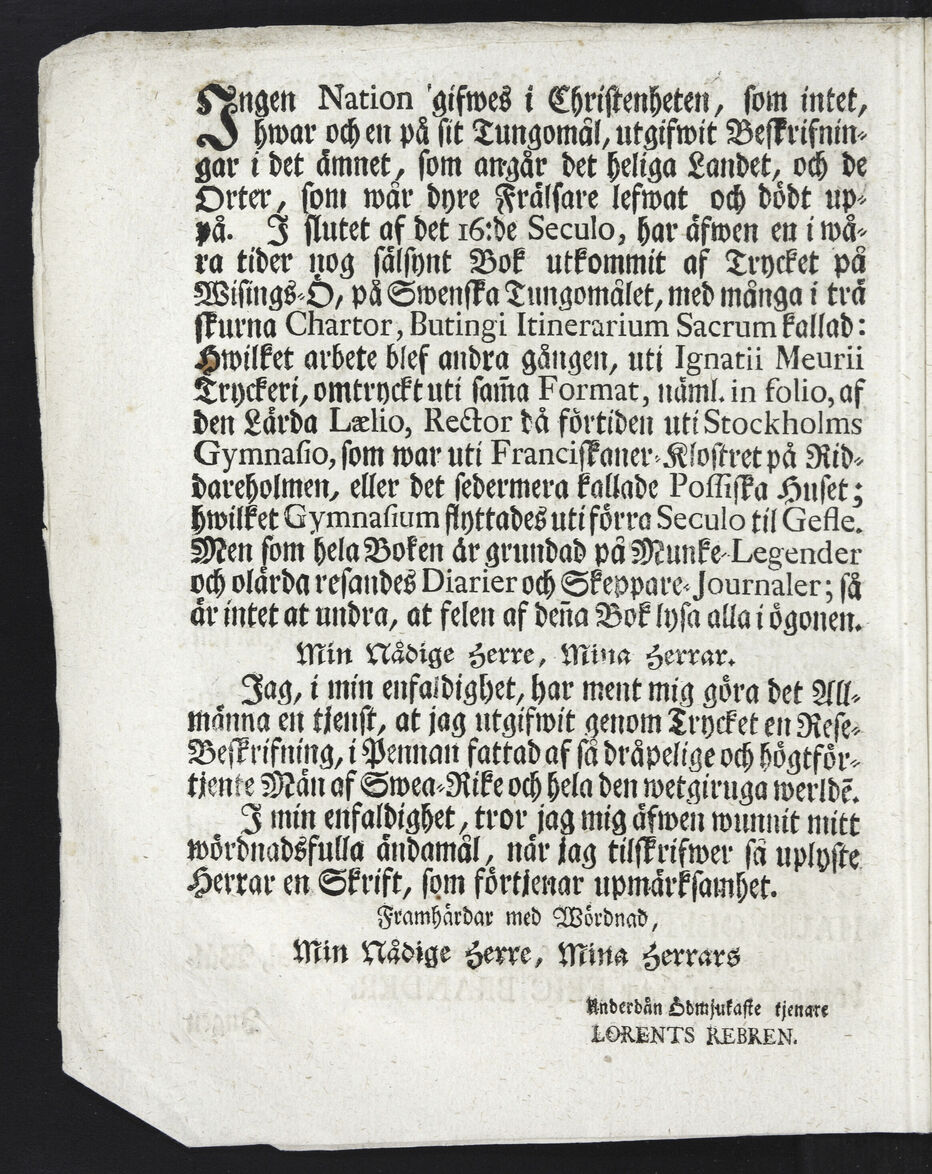 Ingen Nation gifwes i Christenheten, som intet,
hwar och en på sit Tungomål, utgifwit Beskrifnin-
gar i det ämnet, som angår det heliga Landet, och de
Orter, som wår dyre Frälsare lefwat och dödt up-
på. I slutet af det 16:de Seculo, har äfwen en i wå-
ra tider nog sälsynt Bok utkommit af Trycket på
Wisings-Ö, på Swenska Tungomålet, med många i trä
skurna Chartor, Butingi Itinerarium Sacrum kallad:
Hwilket arbete blef andra gången, uti Ignatii Meurii
Tryckeri, omtryckt uti sam̃a Format, näml. in folio, af
den Lärda Lælio, Rector då förtiden uti Stockholms
Gymnasio, som war uti Franciskaner-Klostret på Rid-
dareholmen, eller det sedermera kallade Possiska Huset;
hwilket Gymnasium flyttades uti förra Seculo til Gefle.
Men som hela Boken är grundad på Munke-Legender
och olärda resandes Diarier och Skeppare-Journaler; så
är intet at undra, at felen af den̄a Bok lysa alla i ögonen.
Min Nådige Herre, Mina Herrar.
Jag, i min enfaldighet, har ment mig göra det All-
männa en tjenst, at jag utgifwit genom Trycket en Rese-
Beskrifning, i Pennan fattad af så dråpelige och högtför-
tjente Män af Swea-Rike och hela den wetgiruga werldē.
I min enfaldighet, tror jag mig äfwen wunnit mitt
wördnadsfulla ändamål, när jag tilskrifwer så uplyste
Herrar en Skrift, som förtjenar upmärksamhet.
Framhärdar med Wördnad,
Min Nådige Herre, Mina Herrars
Underdån Ödmjukaste tjenare
LORENTS REBREN.